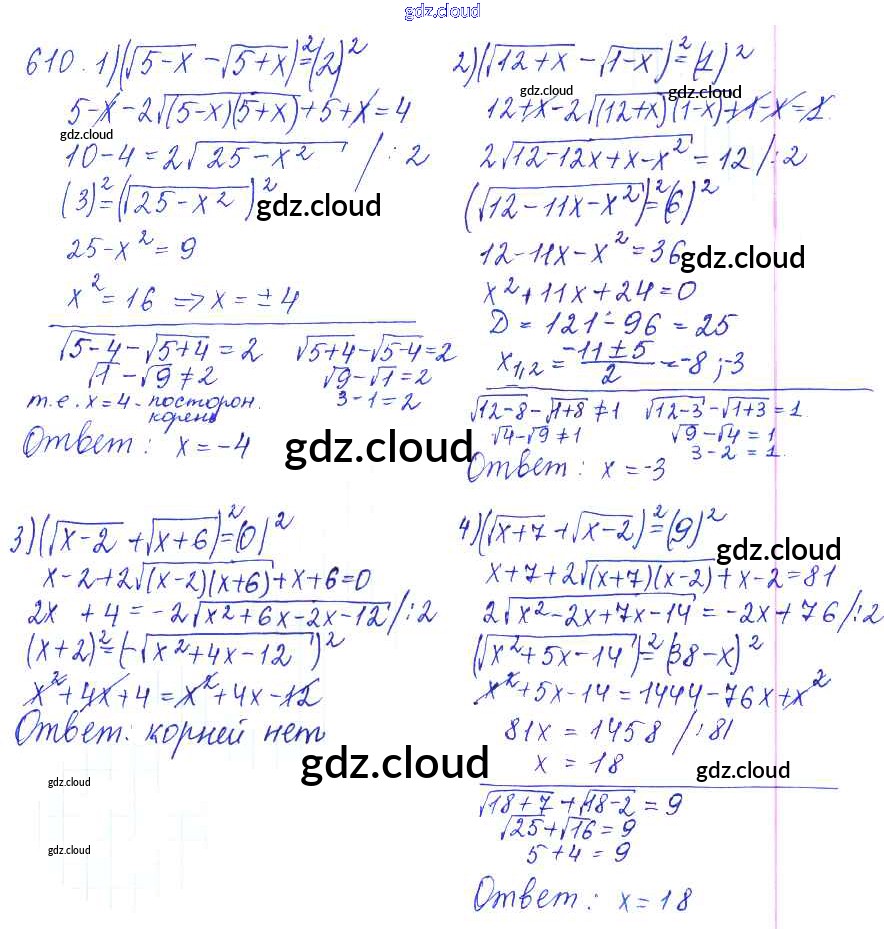 gdz.cloud
610. 1) (√(5-x) - √(5+x))² = (2)²
5-x-2√((5-x)(5+x))+5+x=4
gdz.cloud
10-4=2√(25-x²) /:2
(3)²=(√(25-x²))²
gdz.cloud
25-x²=9
x²=16 => x=±4
√(5-4)-√(5+4)=2 √(5+4)-√(5-4)=2
√1-√9≠2 √9-√1=2
т.е. x=4-посторон. 3-1=2
корень
Ответ: x=-4
gdz.cloud
2) (√(12+x) - √(1-x))²=(1)²
gdz.cloud
12+x-2√((12+x)(1-x))+1-x=1.
2√(12-12x+x-x²)=12 /:2
(√(12-11x-x²))²=(6)²
12-11x-x²=36
gdz.cloud
x²+11x+24=0
D=121-96=25
x₁,₂=(-11±5)/2=-8;-3
√(12-8)-√(1+8)≠1 √(12-3)-√(1+3)=1.
√4-√9≠1 √9-√4=1
3-2=1.
Ответ: x=-3
3) (√(x-2)+√(x+6))²=(0)²
x-2+2√((x-2)(x+6))+x+6=0
2x+4=-2√(x²+6x-2x-12) /:2
(x+2)²=(-√(x²+4x-12))²
x²+4x+4=x²+4x-12
Ответ: корней нет
gdz.cloud
gdz.cloud
gdz.cloud
4) (√(x+7)+√(x-2))²=(9)²
gdz.cloud
x+7+2√((x+7)(x-2))+x-2=81
2√(x²-2x+7x-14)=-2x+76 /:2
(√(x²+5x-14))²=(38-x)²
x²+5x-14=1444-76x+x²
81x=1458 /:81
x=18
gdz.cloud
√(18+7)+√(18-2)=9
√25+√16=9
5+4=9
Ответ: x=18